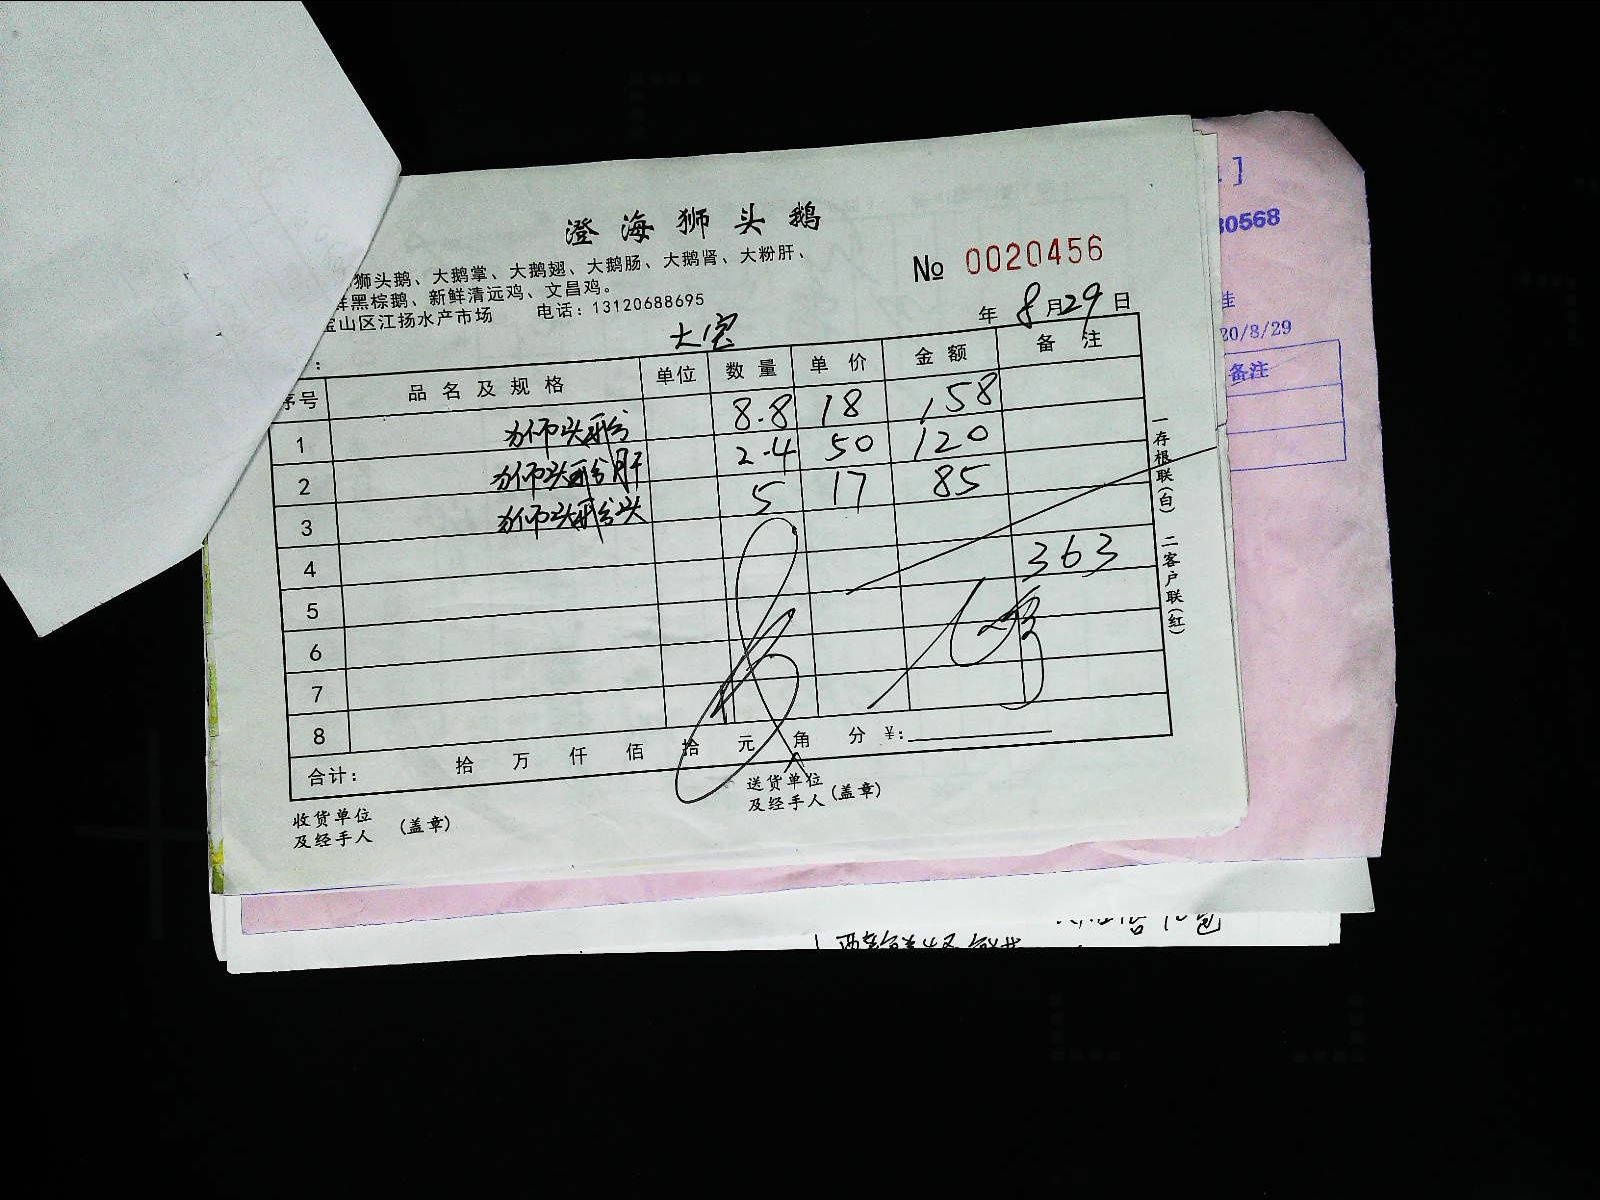 澄海狮头鹅
狮头鹅、大鹅掌、大鹅翅、大鹅肠、大鹅肾、大粉肝、
鲜黑棕鹅、新鲜清远鸡、文昌鸡。
宝山区江扬水产市场 电话:13120688695
№ 0020456
年 8 月 29 日
大宝
:
序号 品名及规格 单位 数量 单价 金额 备注
1 狮头鹅 8.8 18 158
2 狮头鹅肝 2.4 50 120
3 狮头鹅头 5 17 85
4 363
5
6
7
8
合计: 拾 万 仟 佰 拾 元 角 分 ¥:
收货单位
及经手人 (盖章)
送货单位
及经手人 (盖章)
一存根联(白) 二客户联(红)
]
30568
佳
20/8/29
备注